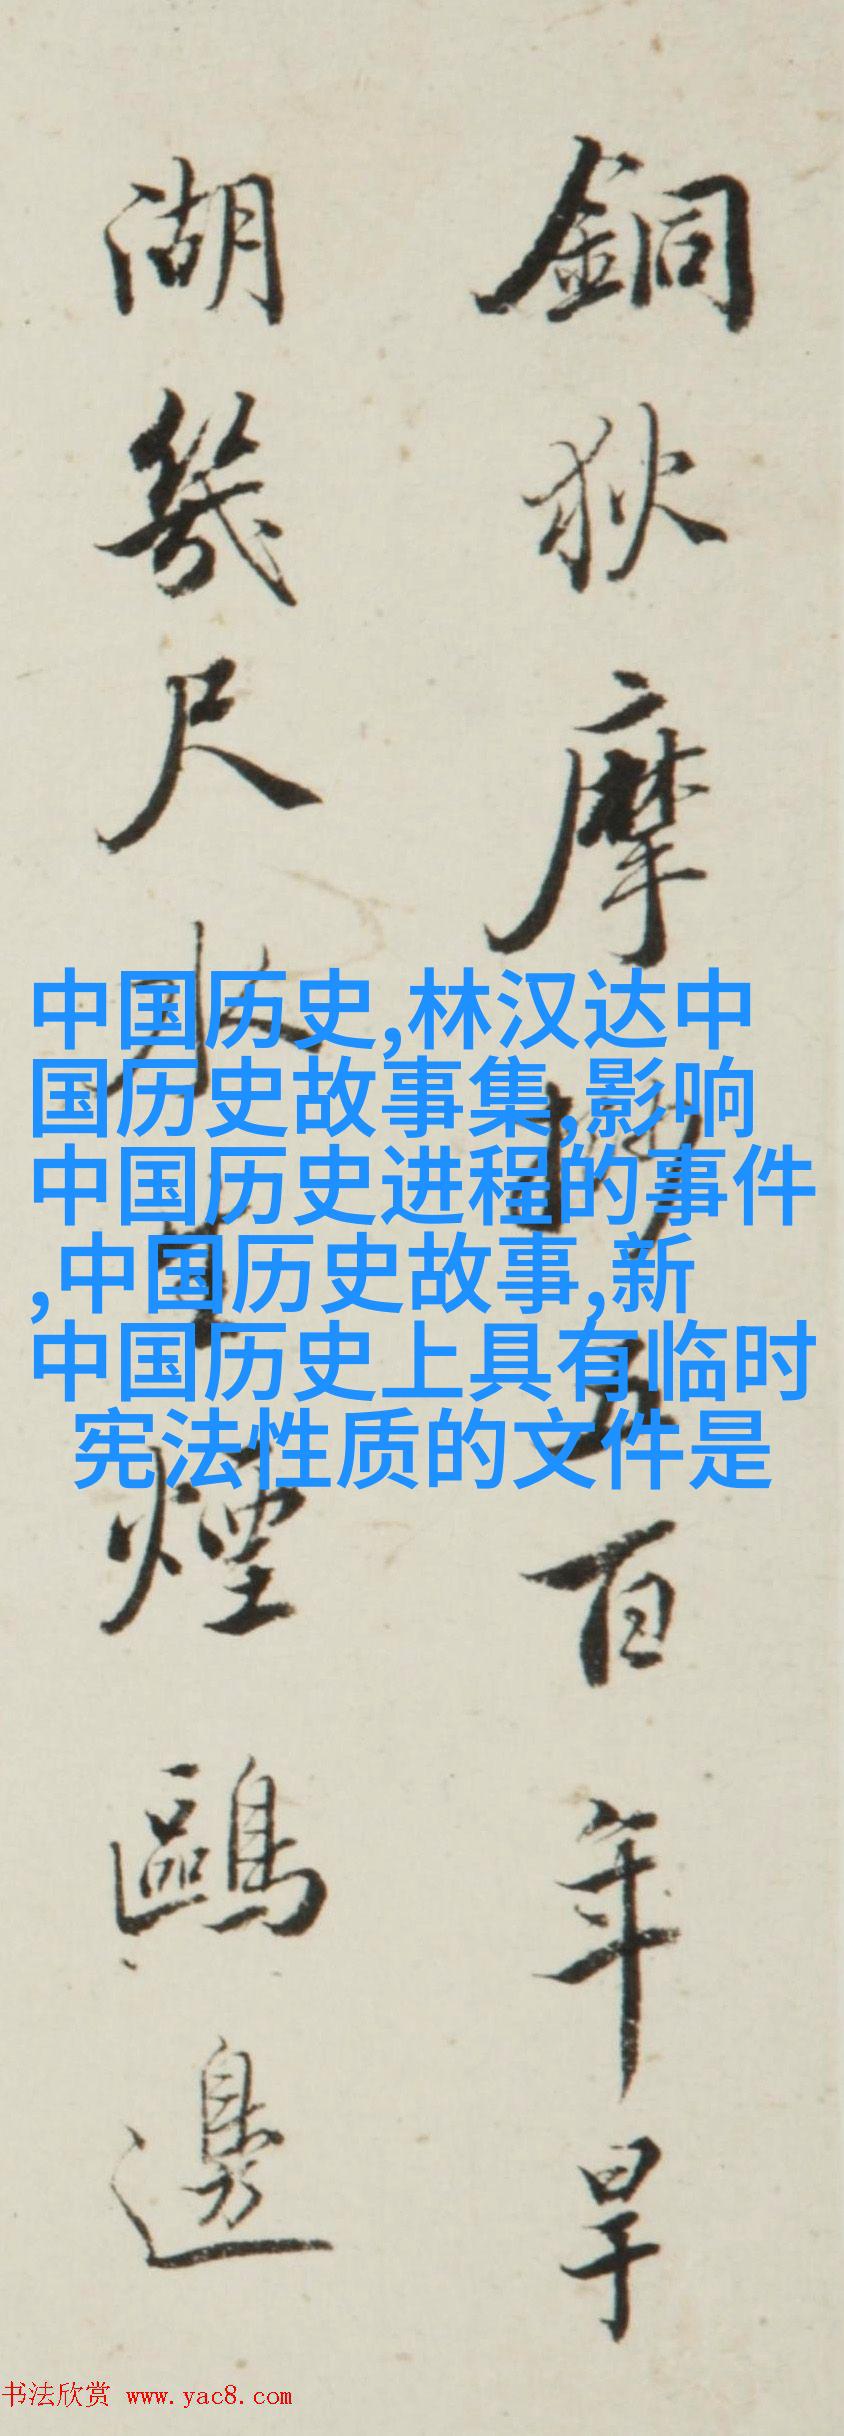 銅狄摩五百年旱
湖幾尺水煙鷗邊
中国历史,林汉达中
国历史故事集,影响
中国历史进程的事件
,中国历史故事,新
中国历史上具有临时
宪法性质的文件是
书法欣赏 www.yac8.com